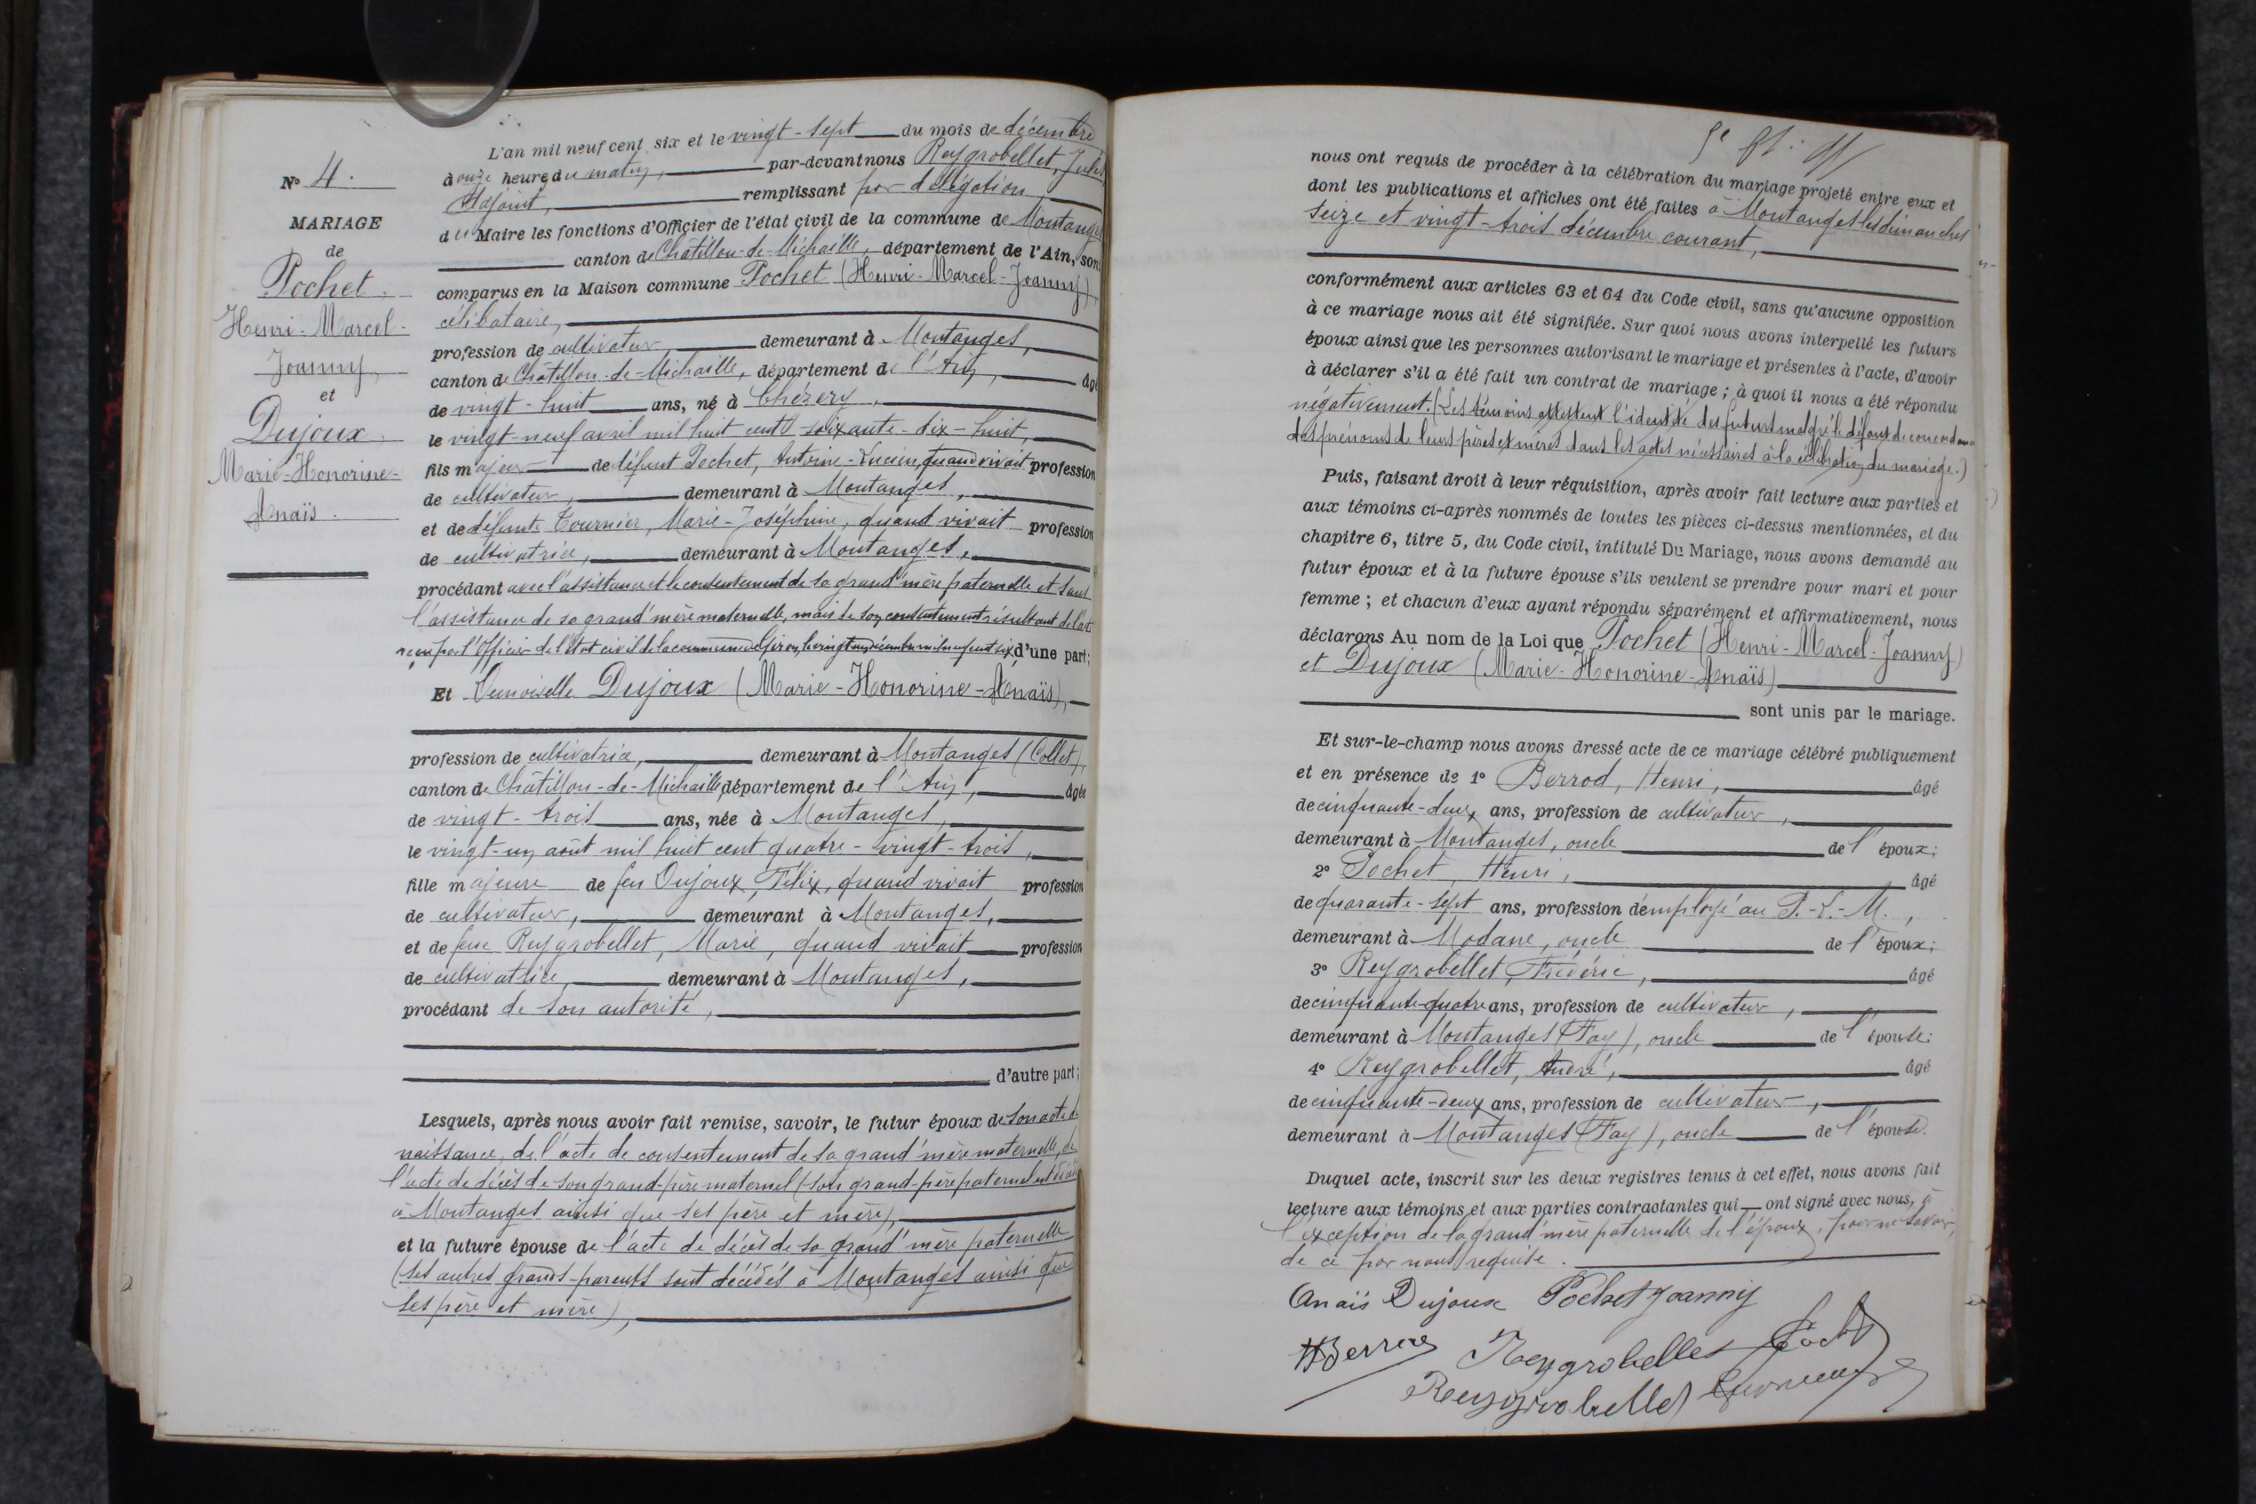 N° 4.
MARIAGE
de
Pochet
Henri-Marcel-
Joanny,
et
Dujoux,
Marie-Honorine-
Anaïs.
L'an mil neuf cent six et le vingt-sept du mois de décembre
à onze heures du matin, par-devant nous Reygrobellet, Jules
Adjoint, remplissant par délégation
du Maire les fonctions d'Officier de l'état civil de la commune de Montanges
canton de Châtillon-de-Michaille, département de l'Ain, sont
comparus en la Maison commune Pochet (Henri-Marcel-Joanny),
célibataire,
profession de cultivateur demeurant à Montanges,
canton de Châtillon-de-Michaille, département de l'Ain, âgé
de vingt-huit ans, né à Chézery,
le vingt-neuf avril mil huit cent soixante-dix-huit,
fils majeur de défunt Pochet, Antoine-Lucien, quand vivait profession
de cultivateur, demeurant à Montanges,
et de défunte Tournier, Marie-Joséphine, quand vivait profession
de cultivatrice, demeurant à Montanges,
procédant avec l'assistance et le consentement de sa grand'mère paternelle et sans
l'assistance de sa grand'mère maternelle, mais de son consentement résultant de l'acte
reçu par l'Officier de l'état civil de la commune le vingt décembre mil neuf cent six d'une part;
Et Demoiselle Dujoux (Marie-Honorine-Anaïs),
profession de cultivatrice, demeurant à Montanges (Collet),
canton de Châtillon-de-Michaille, département de l'Ain, âgée
de vingt-trois ans, née à Montanges,
le vingt-un août mil huit cent quatre-vingt-trois,
fille majeure de feu Dujoux, Félix, quand vivait profession
de cultivateur, demeurant à Montanges,
et de feue Reygrobellet, Marie, quand vivait profession
de cultivatrice, demeurant à Montanges,
procédant de son autorité,
d'autre part;
Lesquels, après nous avoir fait remise, savoir, le futur époux de son acte de
naissance, de l'acte de consentement de sa grand'mère maternelle, de
l'acte de décès de son grand-père maternel (son grand-père paternel est décédé
à Montanges ainsi que ses père et mère),
et la future épouse de l'acte de décès de sa grand'mère paternelle
(ses autres grands-parents sont décédés à Montanges ainsi que
ses père et mère),
nous ont requis de procéder à la célébration du mariage projeté entre eux et
dont les publications et affiches ont été faites à Montanges les dimanches
seize et vingt-trois décembre courant,
conformément aux articles 63 et 64 du Code civil, sans qu'aucune opposition
à ce mariage nous ait été signifiée. Sur quoi nous avons interpellé les futurs
époux ainsi que les personnes autorisant le mariage et présentes à l'acte, d'avoir
à déclarer s'il a été fait un contrat de mariage; à quoi il nous a été répondu
négativement. (Les témoins attestent l'identité des futurs malgré le défaut de concordance
des prénoms de leurs pères et mères dans les actes nécessaires à la célébration du mariage.)
Puis, faisant droit à leur réquisition, après avoir fait lecture aux parties et
aux témoins ci-après nommés de toutes les pièces ci-dessus mentionnées, et du
chapitre 6, titre 5, du Code civil, intitulé Du Mariage, nous avons demandé au
futur époux et à la future épouse s'ils veulent se prendre pour mari et pour
femme; et chacun d'eux ayant répondu séparément et affirmativement, nous
déclarons Au nom de la Loi que Pochet (Henri-Marcel-Joanny)
et Dujoux (Marie-Honorine-Anaïs)
sont unis par le mariage.
Et sur-le-champ nous avons dressé acte de ce mariage célébré publiquement
et en présence de 1° Berrod, Henri, âgé
de cinquante-deux ans, profession de cultivateur,
demeurant à Montanges, oncle de l'époux;
2° Pochet, Henri, âgé
de quarante-sept ans, profession d'employé au P.-L.-M.,
demeurant à Modane, oncle de l'époux;
3° Reygrobellet, Frédéric, âgé
de cinquante-quatre ans, profession de cultivateur,
demeurant à Montanges (Fay), oncle de l'épouse;
4° Reygrobellet, André, âgé
de cinquante-deux ans, profession de cultivateur,
demeurant à Montanges (Fay), oncle de l'épouse.
Duquel acte, inscrit sur les deux registres tenus à cet effet, nous avons fait
lecture aux témoins et aux parties contractantes qui ont signé avec nous, à
l'exception de la grand'mère paternelle de l'époux, pour ne savoir,
de ce par nous requise.
Anaïs Dujoux Pochet Joanny
HBerrod Reygrobellet Pochet
Reygrobellet